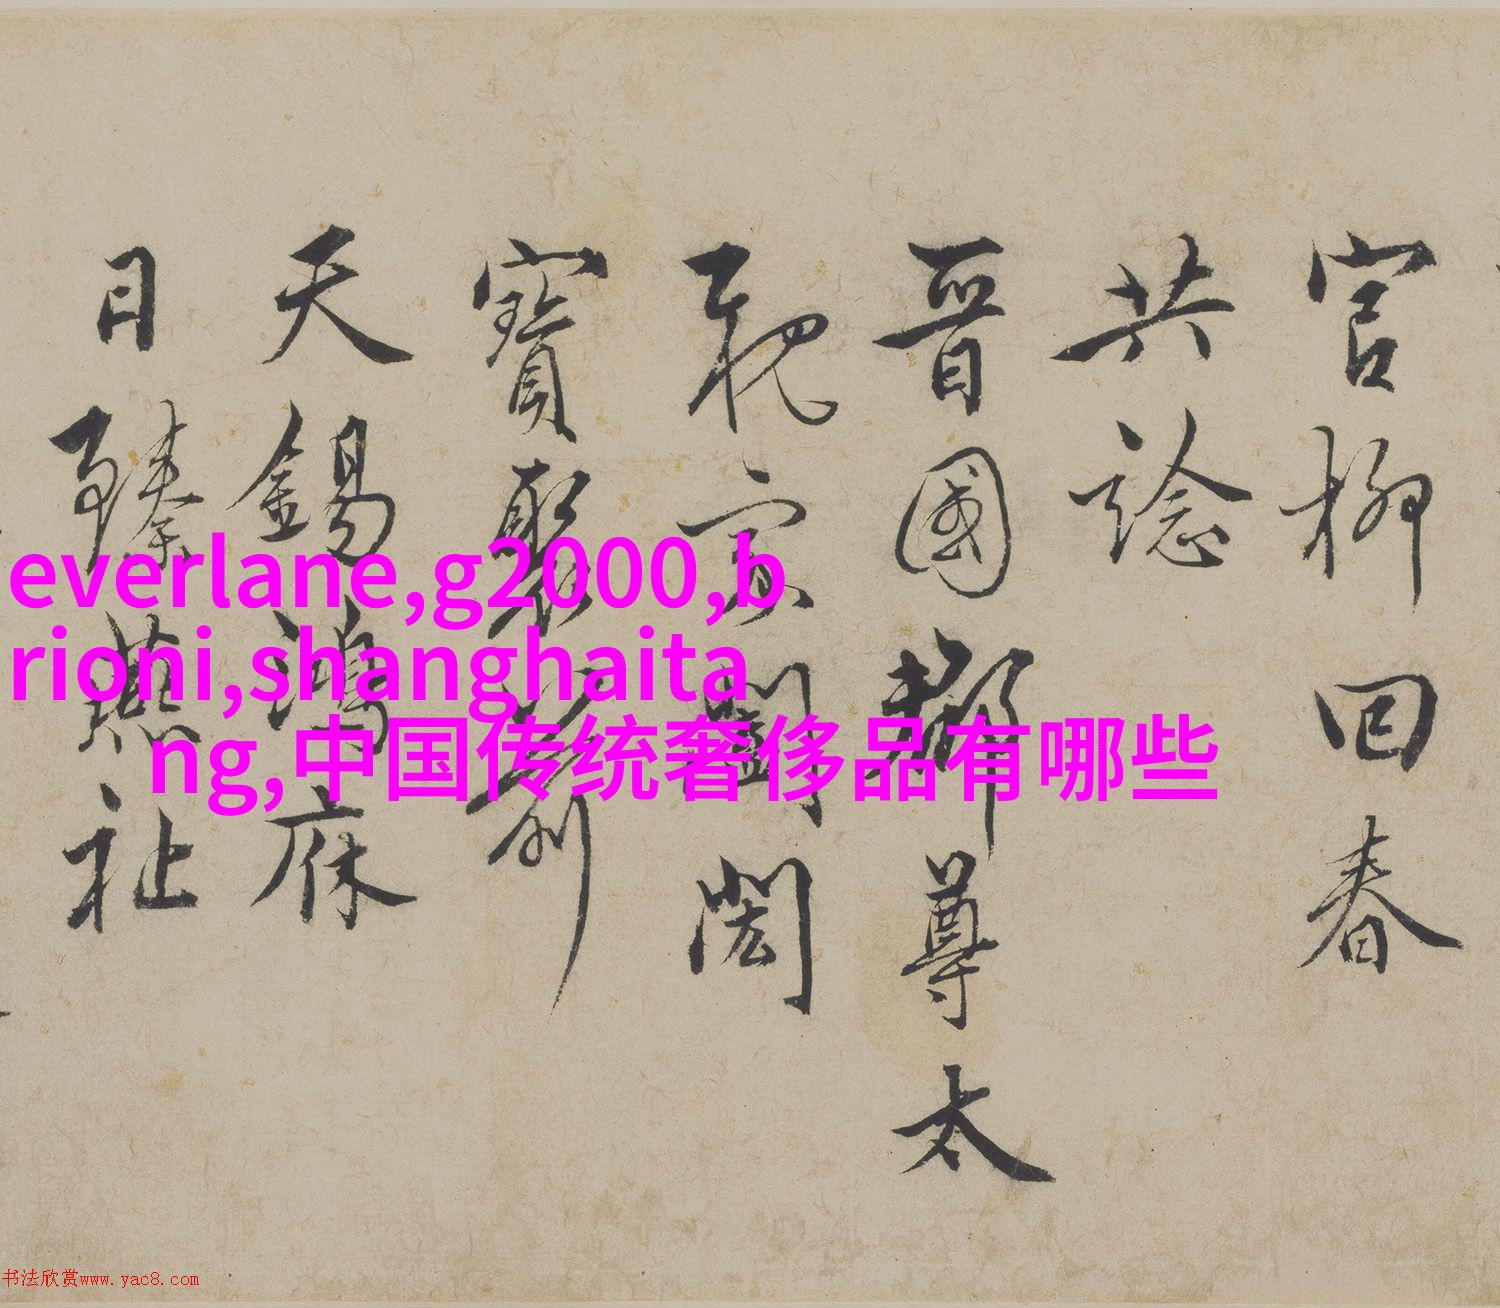 官柳回春
共諗
晉國郡尊太
閎
寶
天錫鴻庥
日臻燕祉
everlane,g2000,b
rioni,shanghaita
ng,中国传统奢侈品有哪些
书法欣赏www.yac8.com